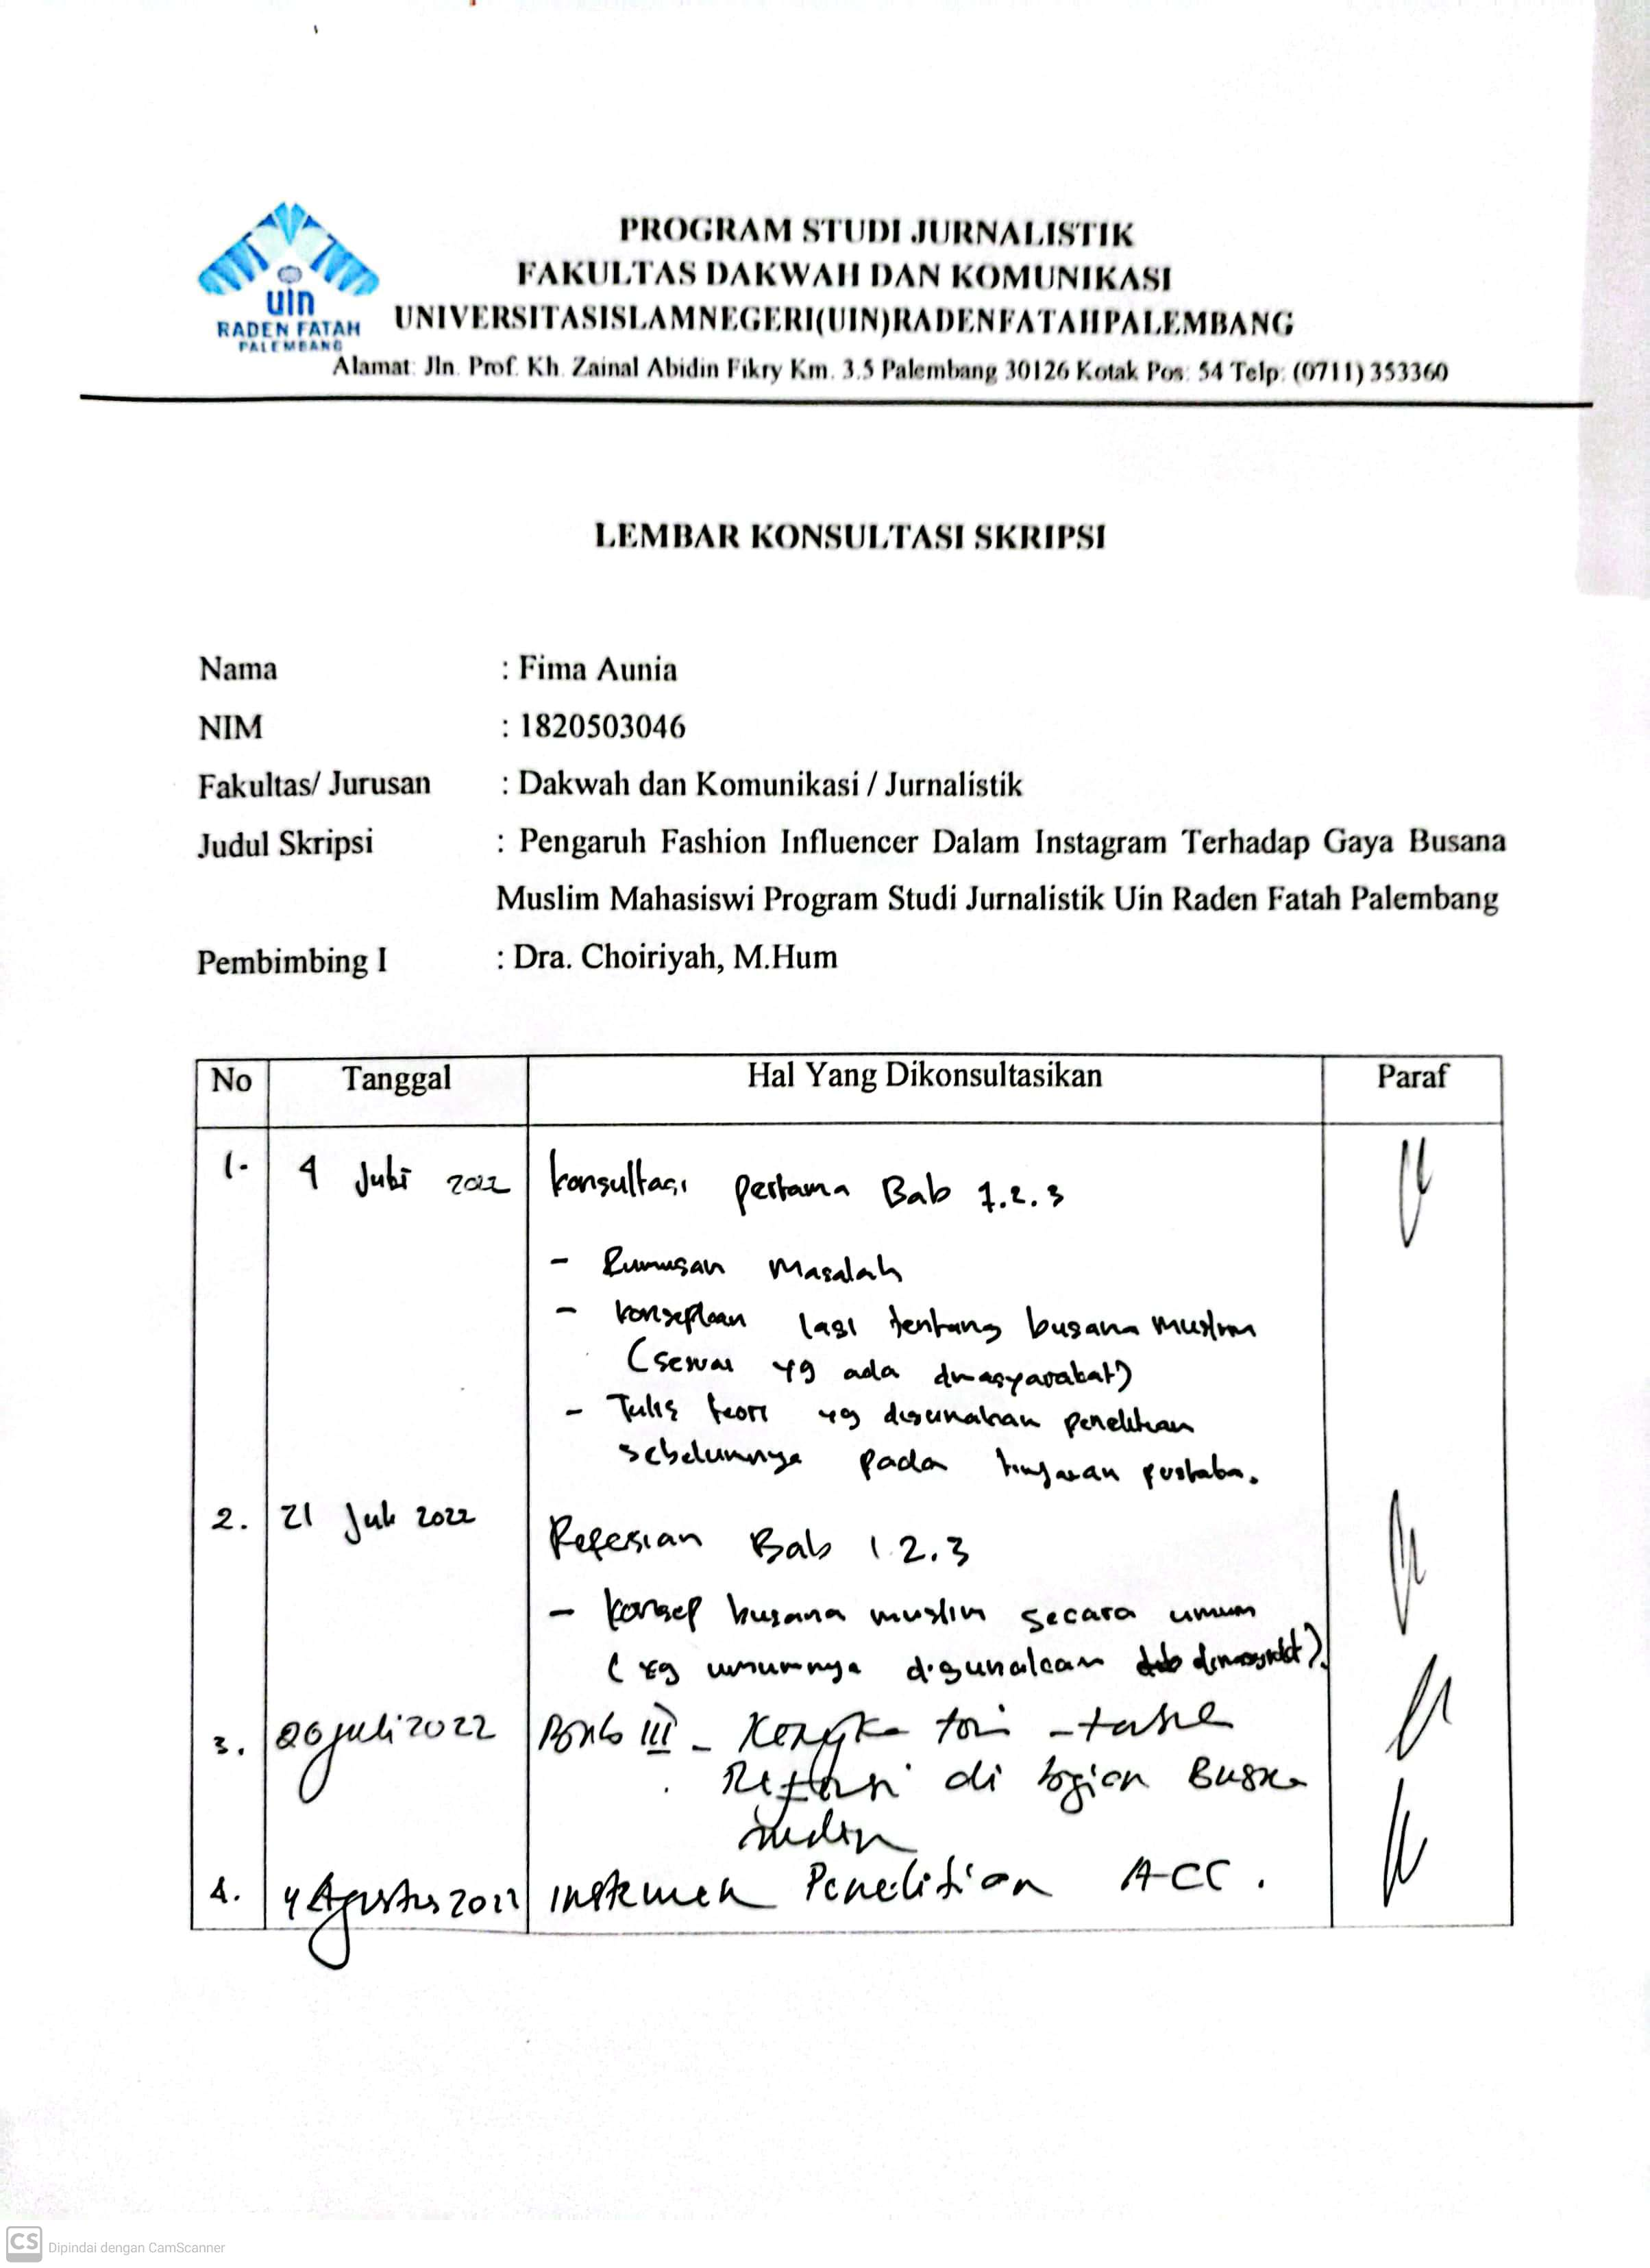 uin
RADEN FATAH
PALEMBANG
PROGRAM STUDI JURNALISTIK
FAKULTAS DAKWAH DAN KOMUNIKASI
UNIVERSITASISLAMNEGERI(UIN)RADENFATAHPALEMBANG
Alamat: Jln. Prof. Kh. Zainal Abidin Fikry Km. 3.5 Palembang 30126 Kotak Pos: 54 Telp: (0711) 353360
LEMBAR KONSULTASI SKRIPSI
Nama : Fima Aunia
NIM : 1820503046
Fakultas/ Jurusan : Dakwah dan Komunikasi / Jurnalistik
Judul Skripsi : Pengaruh Fashion Influencer Dalam Instagram Terhadap Gaya Busana
Muslim Mahasiswi Program Studi Jurnalistik Uin Raden Fatah Palembang
Pembimbing I : Dra. Choiriyah, M.Hum
No Tanggal Hal Yang Dikonsultasikan Paraf
1. 4 Juli 2022 konsultasi pertama Bab 1.2.3
- Rumusan Masalah
- konsepkan lagi tentang busana muslim
(sesuai yg ada dimasyarakat)
- Tulis teori yg digunakan penelitian
sebelumnya pada tinjauan pustaka.
2. 21 Juli 2022
Refesian Bab 1.2.3
- konsep busana muslim secara umum
(yg umumnya digunakan dimasyarakat).
3. 26 juli 2022 Bab III - Kerangka teori -
di bagian Busana
4. 4 Agustus 2022 instrumen Penelitian ACC.
CS Dipindai dengan CamScanner